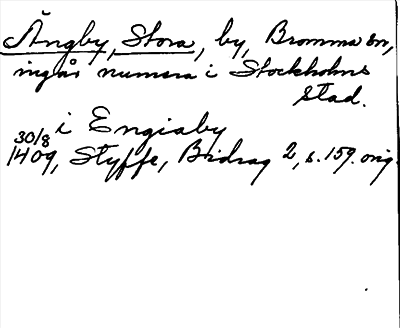 Ängby, Stora, by, Bromma sn,
ingår numera i Stockholms
stad.
i Engiaby
30/8
1409, Styffe, Bidrag 2, s. 159. orig.